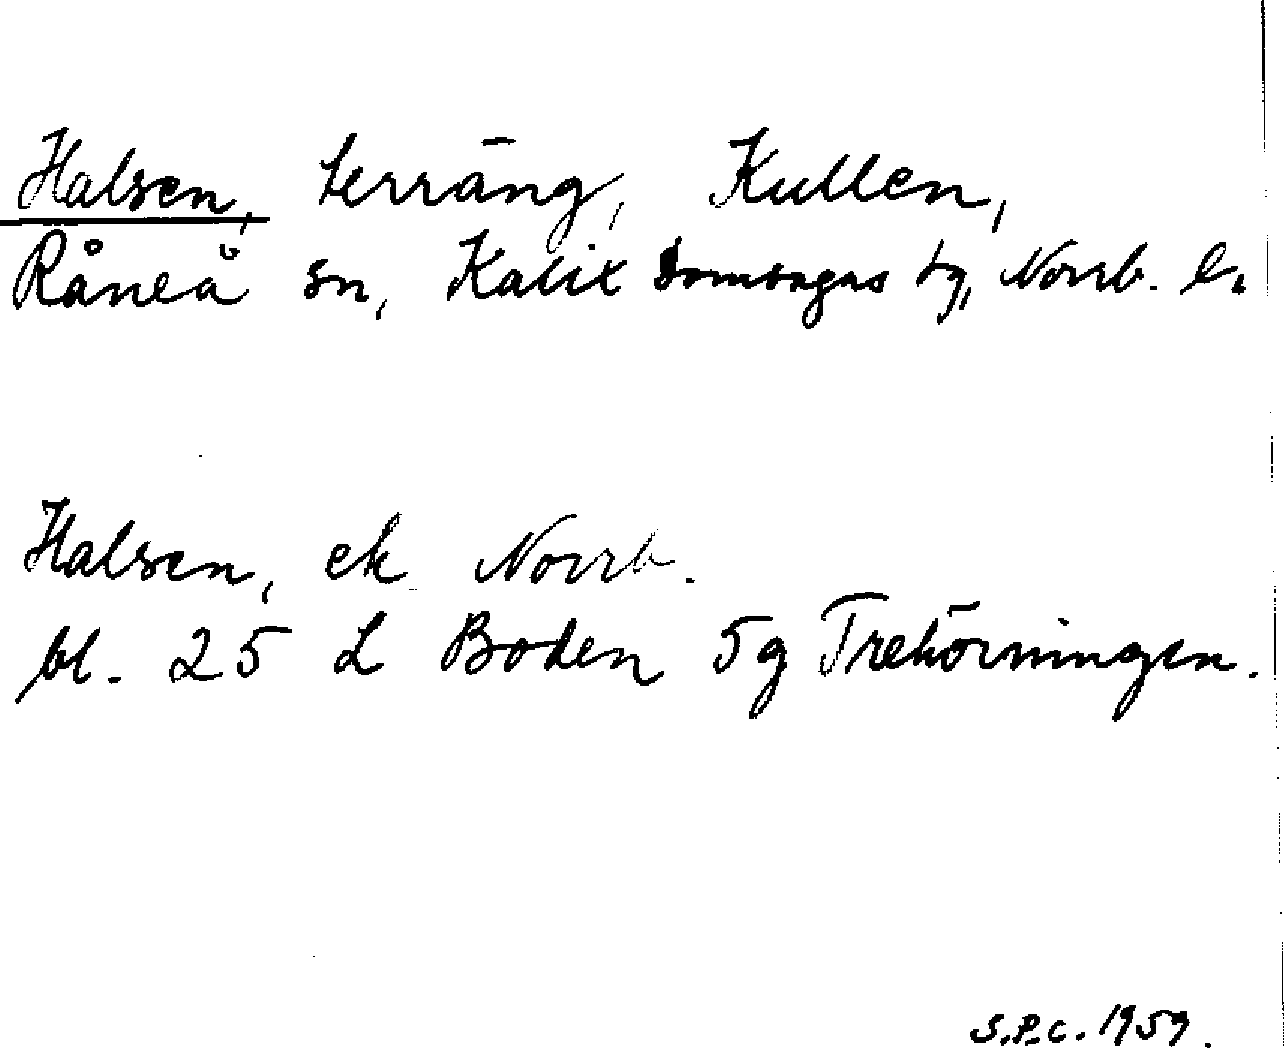 Halsen, terräng, Kullen,
Råneå sn, Kalix domsagas tg, Norrb. l.
Halsen, ek Norrb.
bl. 25 L Boden 5g Trehörningen.
S.P.C. 1959.